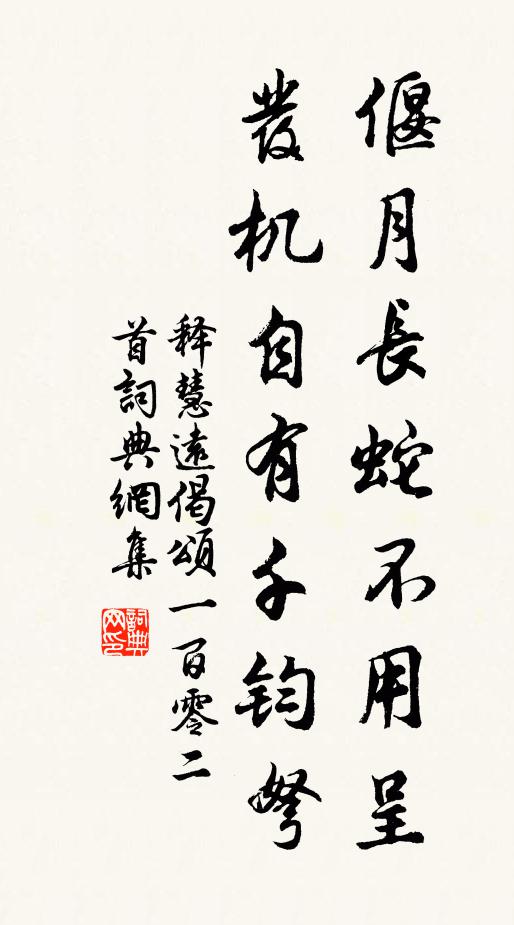 偃月長蛇不用呈
發机自有千鈞弩
释慧遠偈頌一百零二
首詞典網集
詞典
网印